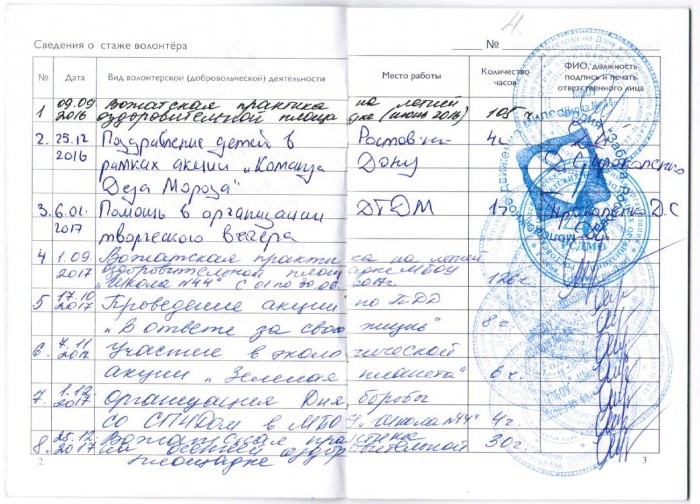 4.
Сведения о стаже волонтёра
№
№ Дата Вид волонтерской (добровольческой) деятельности Место работы Количество часов ФИО, должность подпись и печать ответственного лица
1 09.09 Вожатская практика на летней
2016 оздоровительной площадке (июнь 2016) 105 ч.
2. 25.12 Поздравление детей в Ростов-на- 4ч
2016 рамках акции „Команда Дону
Деда Мороза"
3. 6.01. Помощь в организации ДТДМ 1ч Д.С
2017 творческого вечера
4 1.09 Вожатская практика на летней
2017 оздоровительной площадке МБОУ
„Школа №44" с 01 по 2017г. 126ч.
5 17.10 Проведение акции по ПДД
2017 „В ответе за свою жизнь" 8 ч
6. 7.11 Участие в экологической
2017 акции „Зеленая планета" 6 ч.
7. 1.12 Организация Дня борьбы
2017 со СПИДом в МБОУ „Школа №44" 4ч.
8. 25.12 Вожатская практика
2017 на осенней оздоровительной 30ч.
площадке
2
3